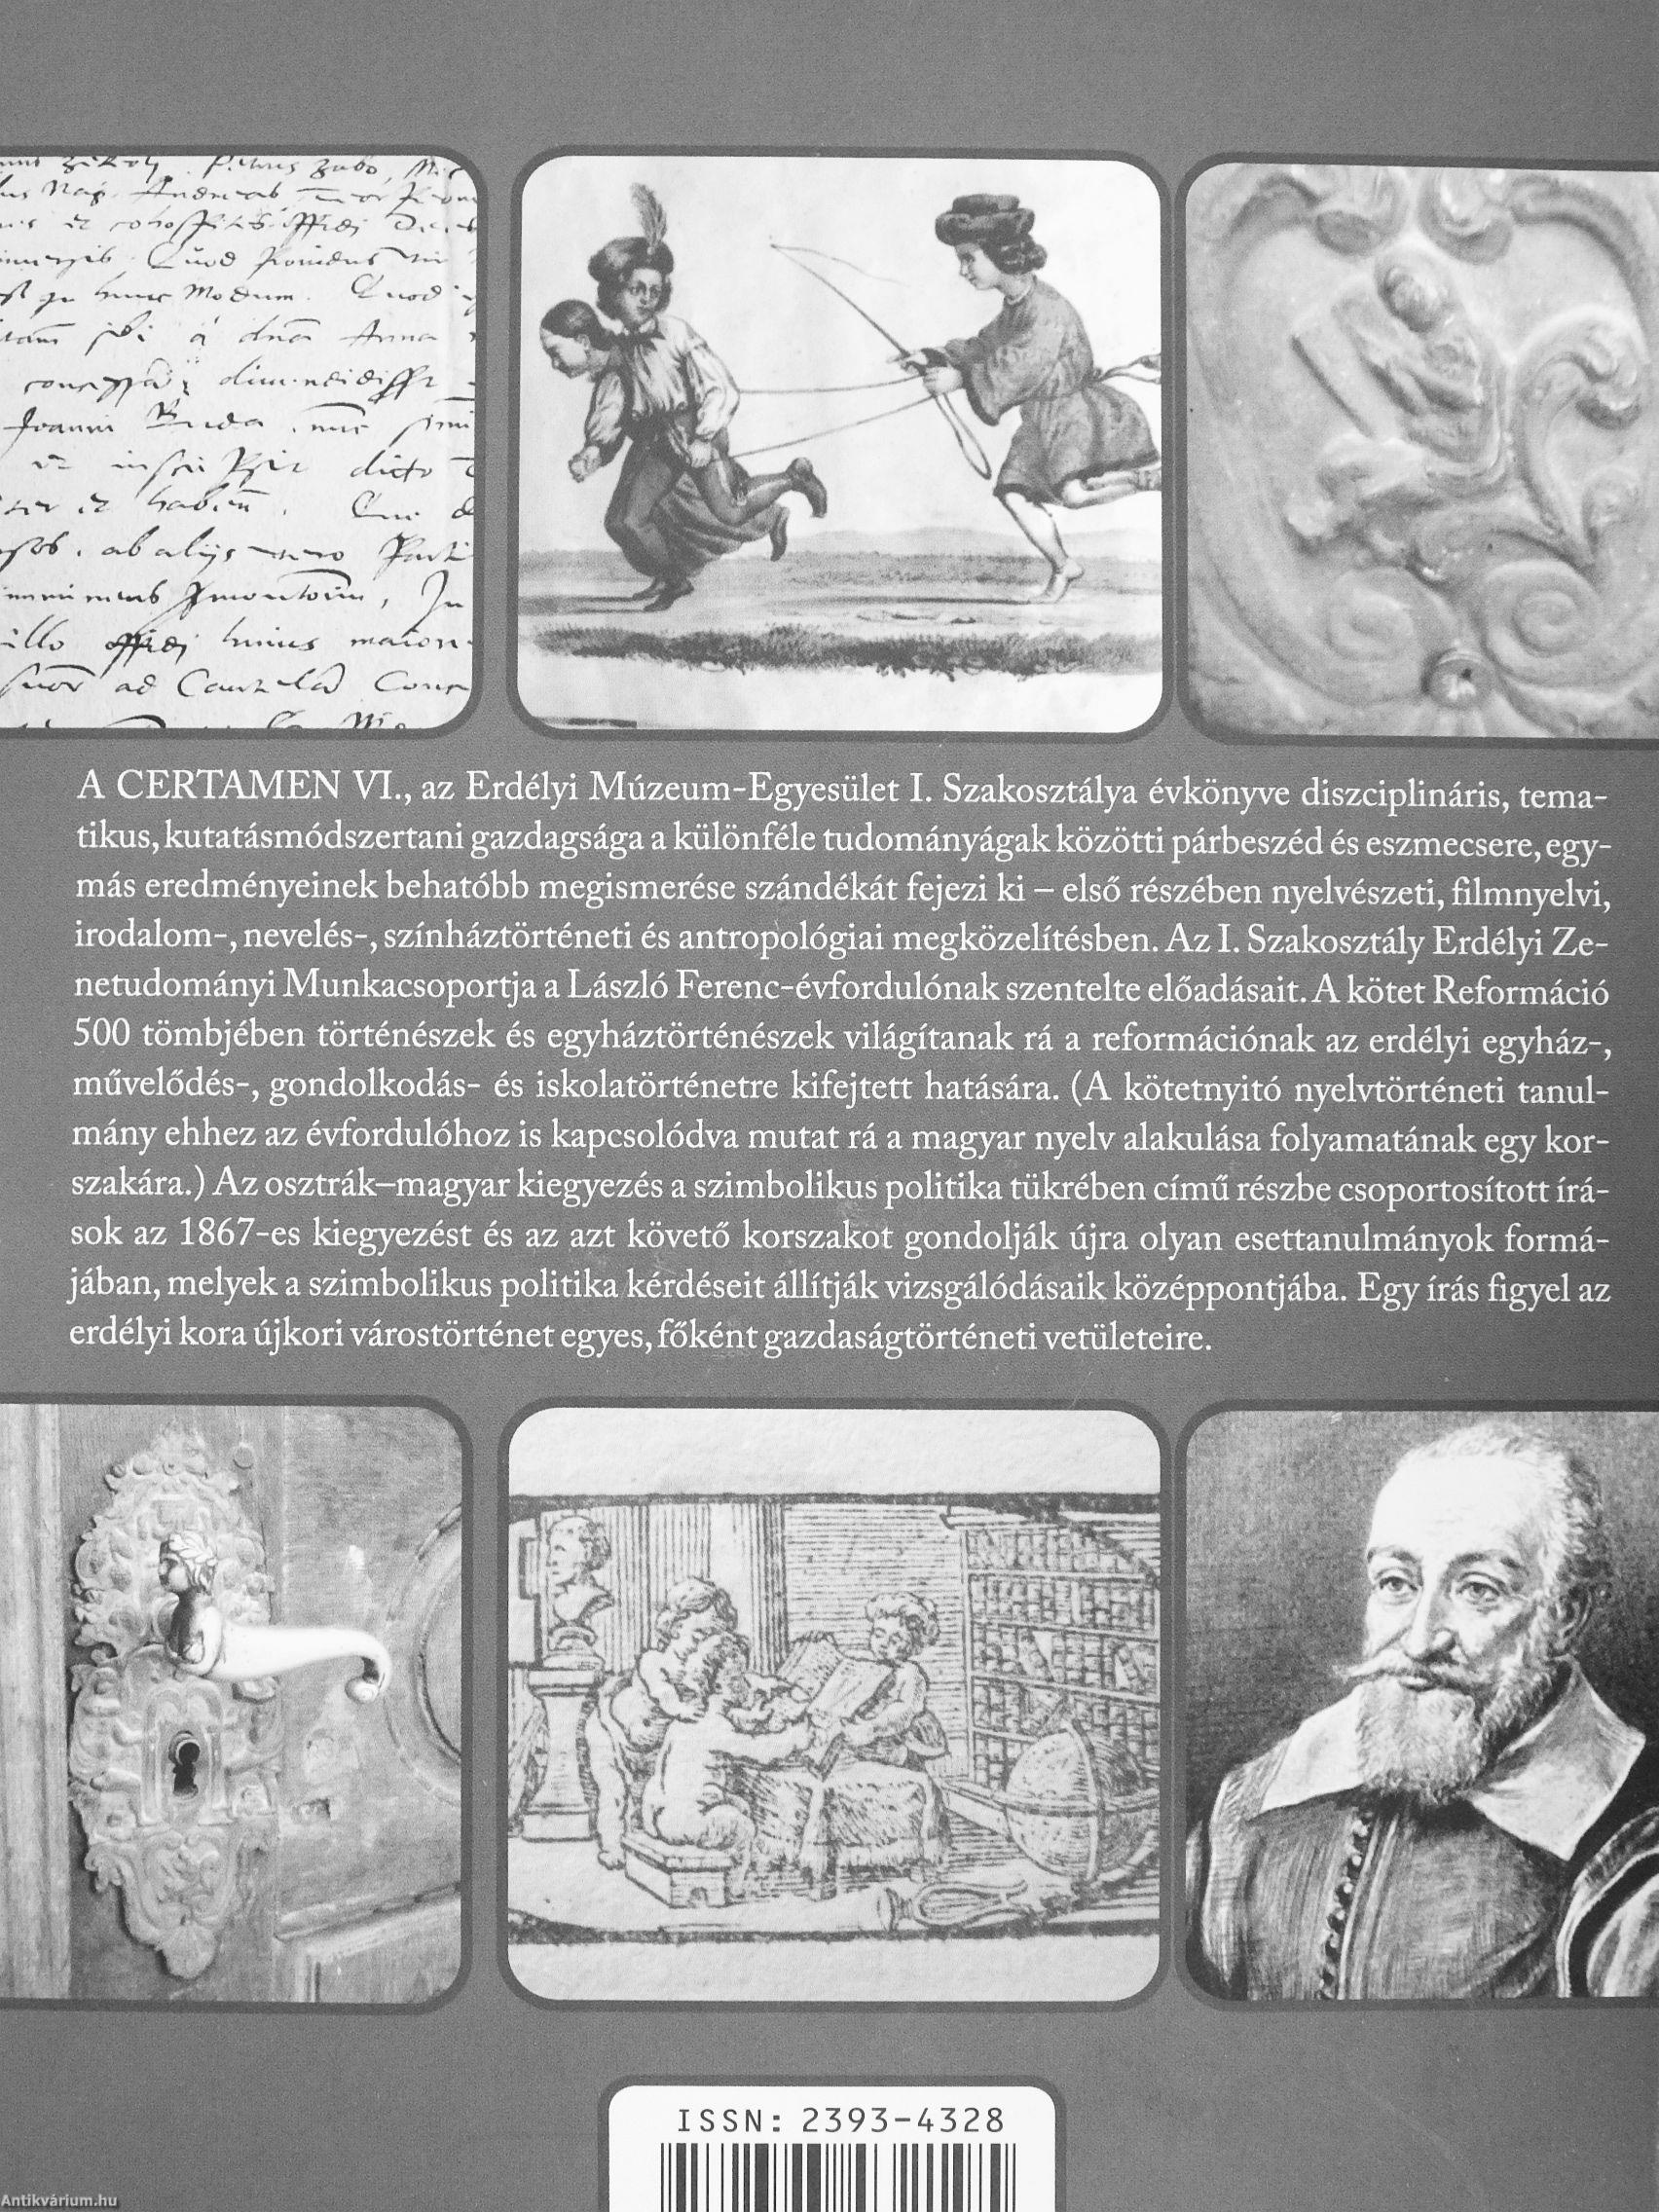 Petrus Zabo,
Andreas
Quod
hunc Modum. Quod
a Anna
Joanni
dicto
et
ab alijs
In
illo huius maiori
ad
A CERTAMEN VI., az Erdélyi Múzeum-Egyesület I. Szakosztálya évkönyve diszciplináris, tema-
tikus, kutatásmódszertani gazdagsága a különféle tudományágak közötti párbeszéd és eszmecsere, egy-
más eredményeinek behatóbb megismerése szándékát fejezi ki – első részében nyelvészeti, filmnyelvi,
irodalom-, nevelés-, színháztörténeti és antropológiai megközelítésben. Az I. Szakosztály Erdélyi Ze-
netudományi Munkacsoportja a László Ferenc-évfordulónak szentelte előadásait. A kötet Reformáció
500 tömbjében történészek és egyháztörténészek világítanak rá a reformációnak az erdélyi egyház-,
művelődés-, gondolkodás- és iskolatörténetre kifejtett hatására. (A kötetnyitó nyelvtörténeti tanul-
mány ehhez az évfordulóhoz is kapcsolódva mutat rá a magyar nyelv alakulása folyamatának egy kor-
szakára.) Az osztrák–magyar kiegyezés a szimbolikus politika tükrében című részbe csoportosított írá-
sok az 1867-es kiegyezést és az azt követő korszakot gondolják újra olyan esettanulmányok formá-
jában, melyek a szimbolikus politika kérdéseit állítják vizsgálódásaik középpontjába. Egy írás figyel az
erdélyi kora újkori várostörténet egyes, főként gazdaságtörténeti vetületeire.
ISSN: 2393-4328
Antikvárium.hu